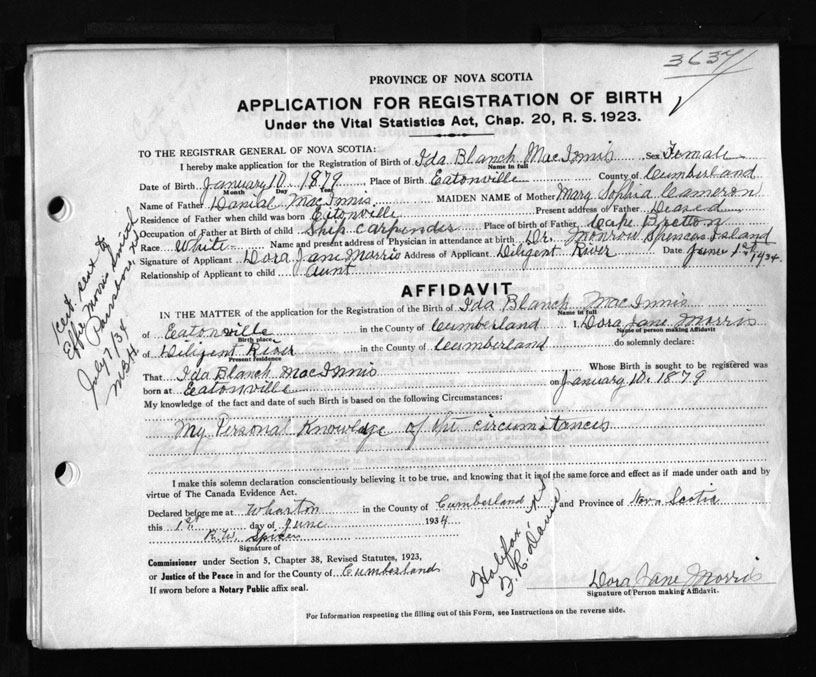 3637
PROVINCE OF NOVA SCOTIA
APPLICATION FOR REGISTRATION OF BIRTH
Under the Vital Statistics Act, Chap. 20, R. S. 1923.
TO THE REGISTRAR GENERAL OF NOVA SCOTIA:
I hereby make application for the Registration of Birth of Ida Blanch MacInnis Sex Female
Name in full
Date of Birth January 10. 1879 Place of Birth Eatonville County of Cumberland
Month Day Year
Name of Father Danial MacInnis. MAIDEN NAME of Mother Mary Sophia Cameron
Residence of Father when child was born Eatonville Present address of Father Deaced
Occupation of Father at Birth of Child Ship carpender Place of birth of Father Cape Bretton
Race White Name and present address of Physician in attendance at birth Dr. Monrow Spencers Island
Signature of Applicant Dora Jane Morris Address of Applicant Diligent River Date June 1st 1934.
Relationship of Applicant to child Aunt
AFFIDAVIT
IN THE MATTER of the application for the Registration of the Birth of Ida Blanch MacInnis
Name in full
of Eatonville in the County of Cumberland I, Dora Jane Morris
Birth place Name of person making Affidavit
of Diligent River in the County of Cumberland do solemnly declare:
Present residence
That Ida Blanch MacInnis Whose Birth is sought to be registered was
born at Eatonville on January 10. 1879
My knowledge of the fact and date of such Birth is based on the following Circumstances:
My Personal Knowledge of the circumstances
I make this solemn declaration conscientiously believing it to be true, and knowing that it is of the same force and effect as if made under oath and by
virtue of The Canada Evidence Act.
Declared before me at Wharton in the County of Cumberland and Province of Nova Scotia
this 1st day of June 1934
R.W. Spicer
Signature of
Commissioner under Section 5, Chapter 38, Revised Statutes, 1923,
or Justice of the Peace in and for the County of Cumberland
If sworn before a Notary Public affix seal.
Dora Jane Morris
Signature of Person making Affidavit.
For Information respecting the filling out of this Form, see Instructions on the reverse side.
Cert. sent to
Effie Morris Smith
Parrsboro, N.S.
July 7/34
Halifax N S
F. C. Davis